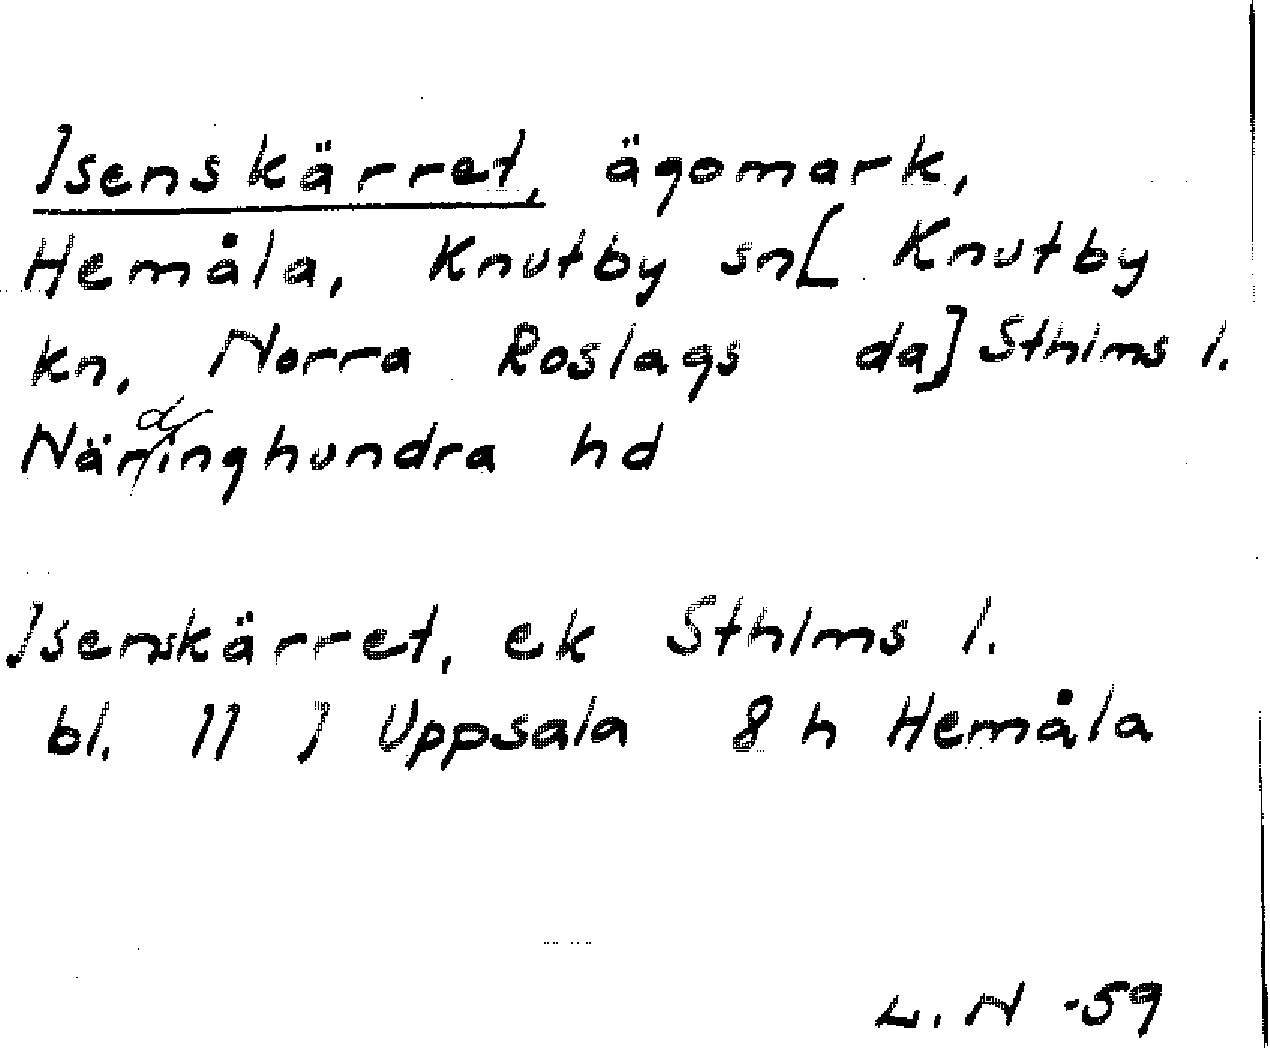 Isenskärret, ägomark,
Hemåla, Knutby sn [Knutby
kn, Norra Roslags da] Sthlms l.
Närdinghundra hd
Isenskärret, ek Sthlms l.
bl. 11 J Uppsala 8 h Hemåla
L. N -59